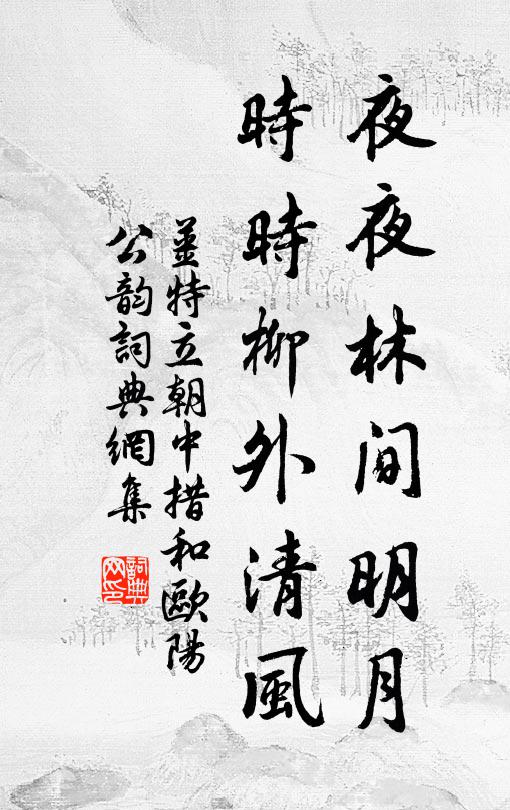 夜夜林间明月
時時柳外清風
薑特立朝中措和歐陽
公韵詞典網集
詞典
网印